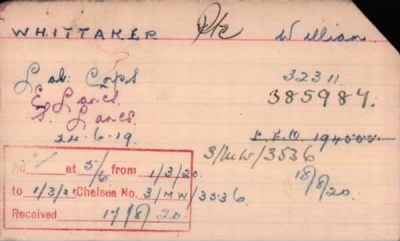 WHITTAKER Pte William
Lab: Corps 32311
E Lancs. 385987.
S. Lancs.
24.6.19.
3/MW/3536
18/8/20.
at 5/6 from 1/3/20
to 1/3/21 Chelsea No. 3/MW/3536
Received 17/8/20